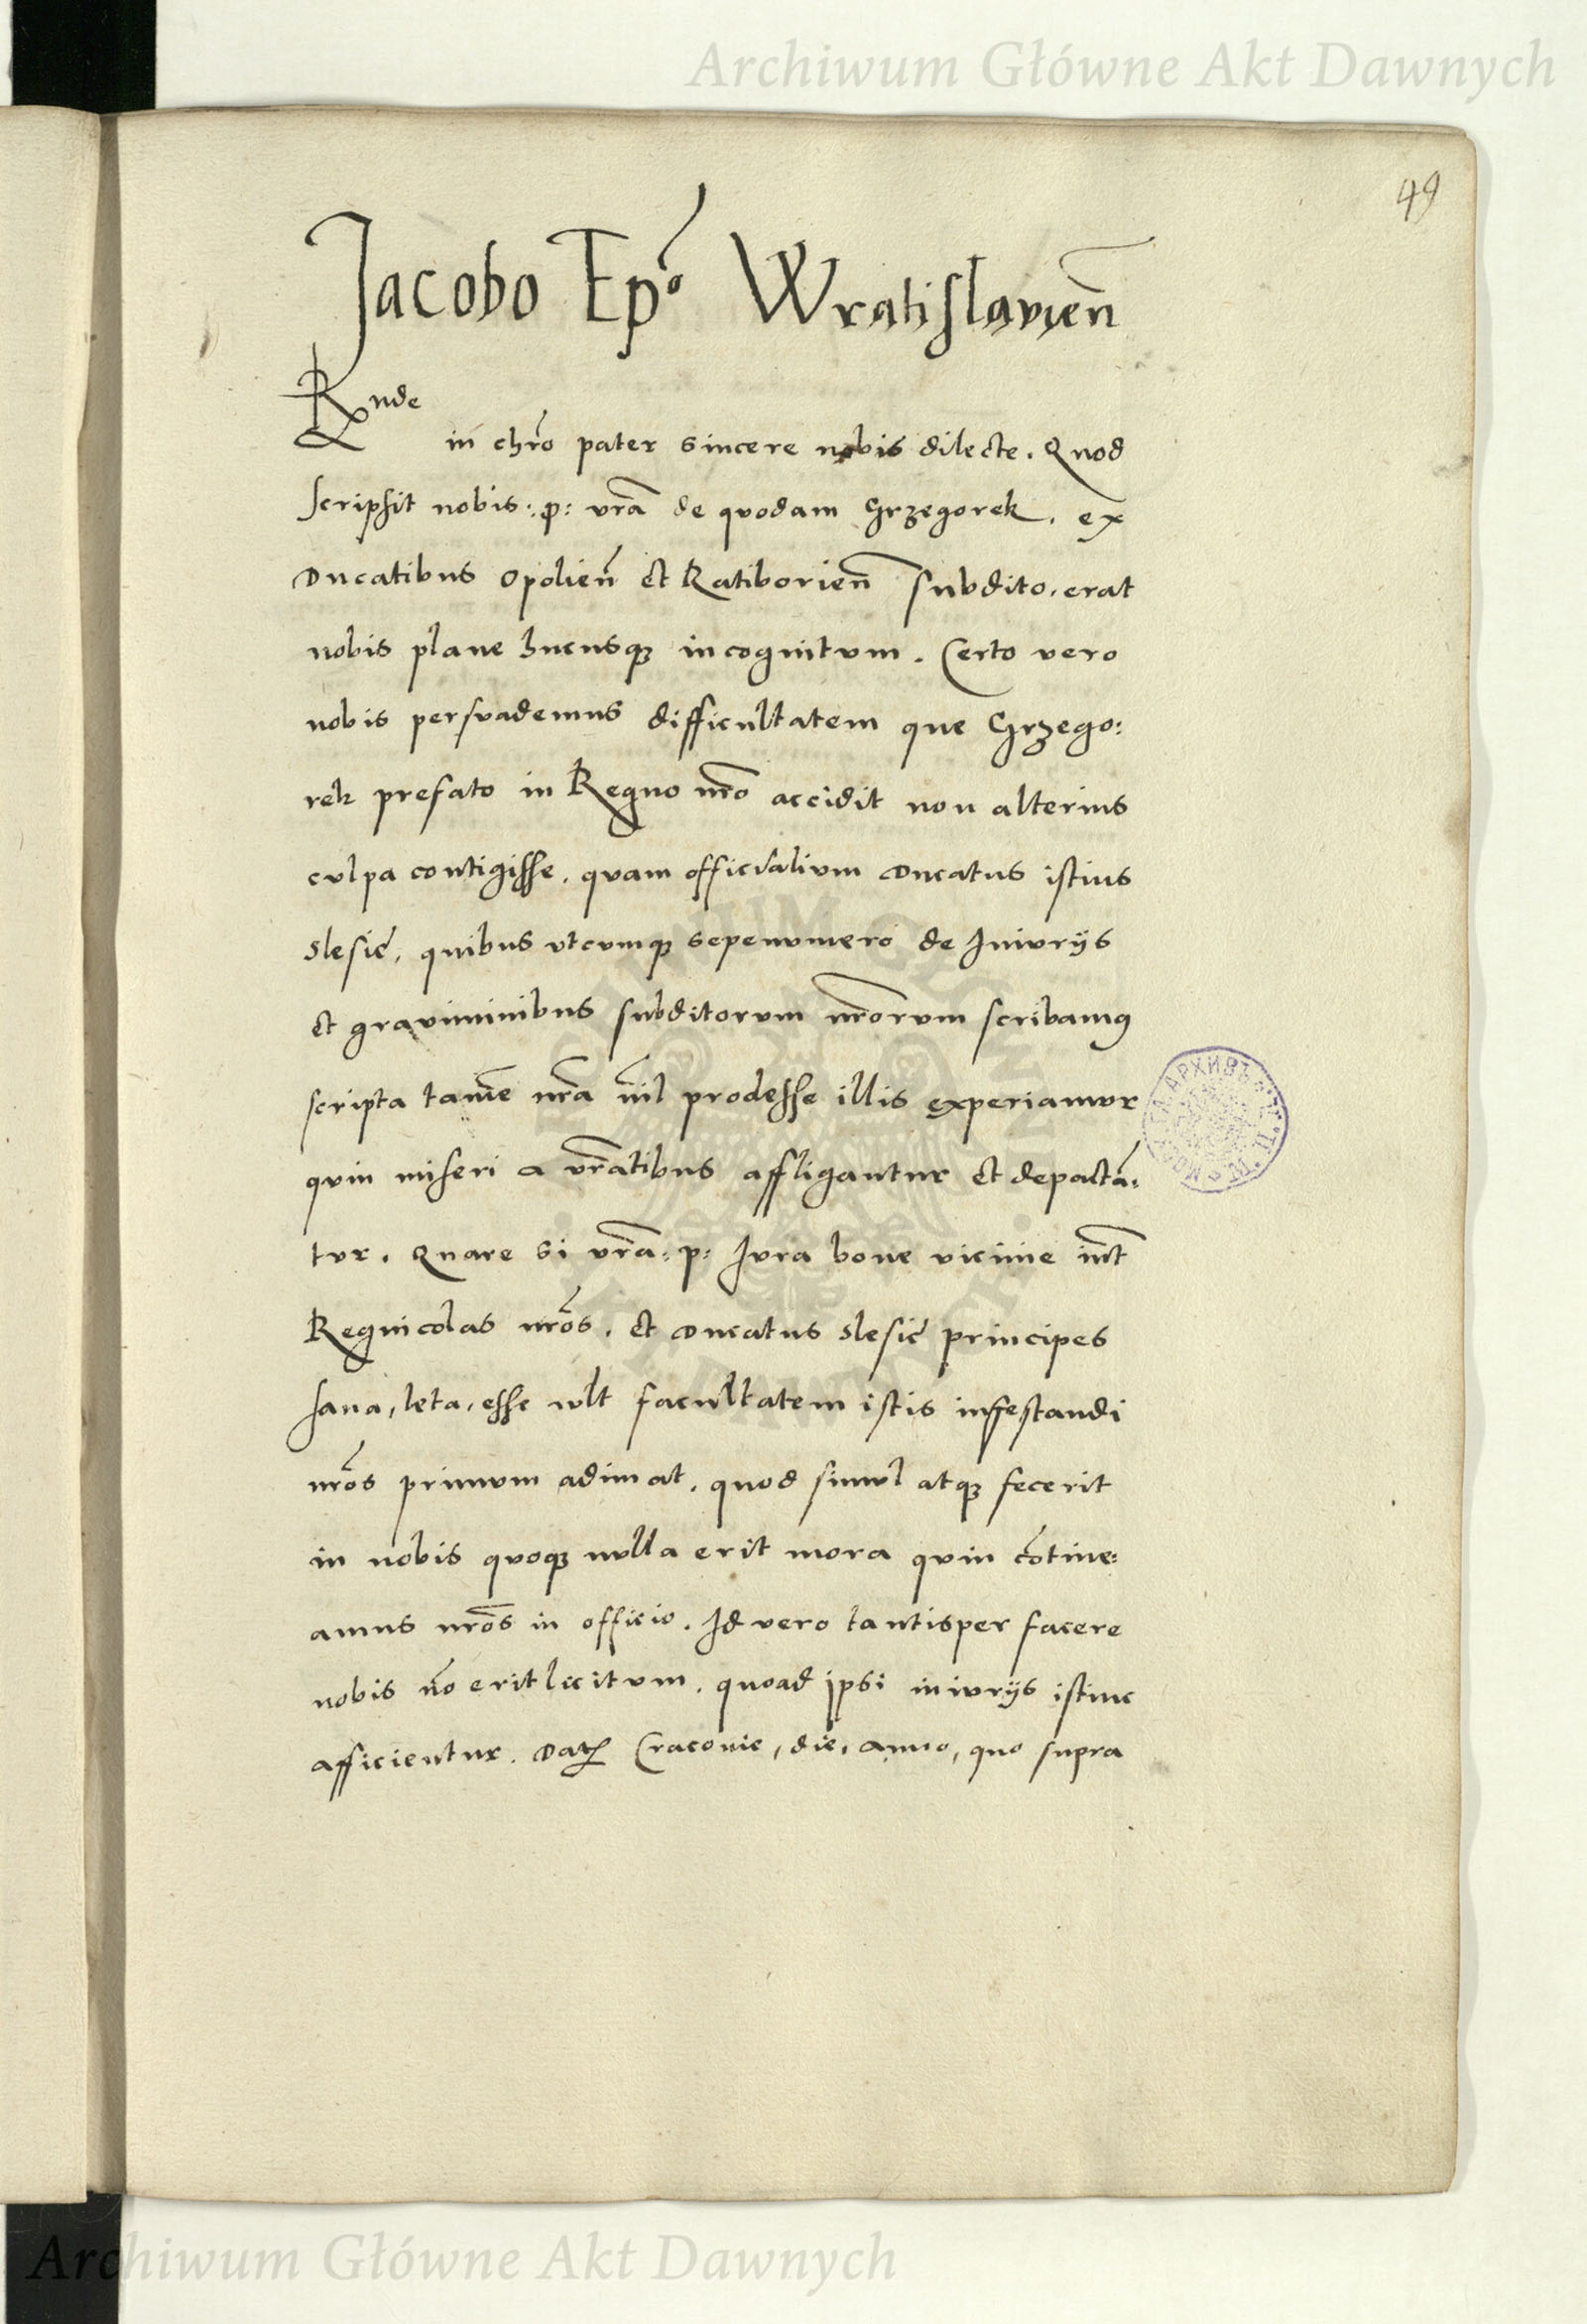 Archiwum Główne Akt Dawnych
49
Jacobo Ep̅o Wratislavien̅
Rnde
in chr̅o pater sincere nobis dilecte. Quod
scripsit nobis :p: vr̅a de quodam Grzegorek. ex
Ducatibus Opolien̅ et Ratiborien̅ subdito, erat
nobis plane hucusqꝫ incognitum. Certo vero
nobis persvademus difficultatem que Grzego:
rek prefato in Regno nr̅o accidit non alterius
culpa contigisse. quam officialium Ducatus istius
Slesie, quibus utcumqꝫ sepenumero de Iniurijs
et graviminibus subditorum nr̅orum scribamꝰ
scripta tame̅ nr̅a nil̅ prodesse illis experiamur
quin miseri a vr̅atibus affligantur et depacta̅:
tur. Quare si vr̅a :p: Jura bone vicinie int̅
Regnicolas nr̅os. et Ducatus Slesie principes
sana, leta, esse vult facultatem istis infestandi
nr̅os primum adimat. quod simul atqꝫ fecerit
in nobis quoqꝫ nulla erit mora quin co̅tine:
amus nr̅os in officio. Id vero tantisper facere
nobis no̅ erit licitum. quoad ipsi iniurijs istinc
afficientur. Datꝭ Cracovie, die, anno, quo supra
Archiwum Główne Akt Dawnych